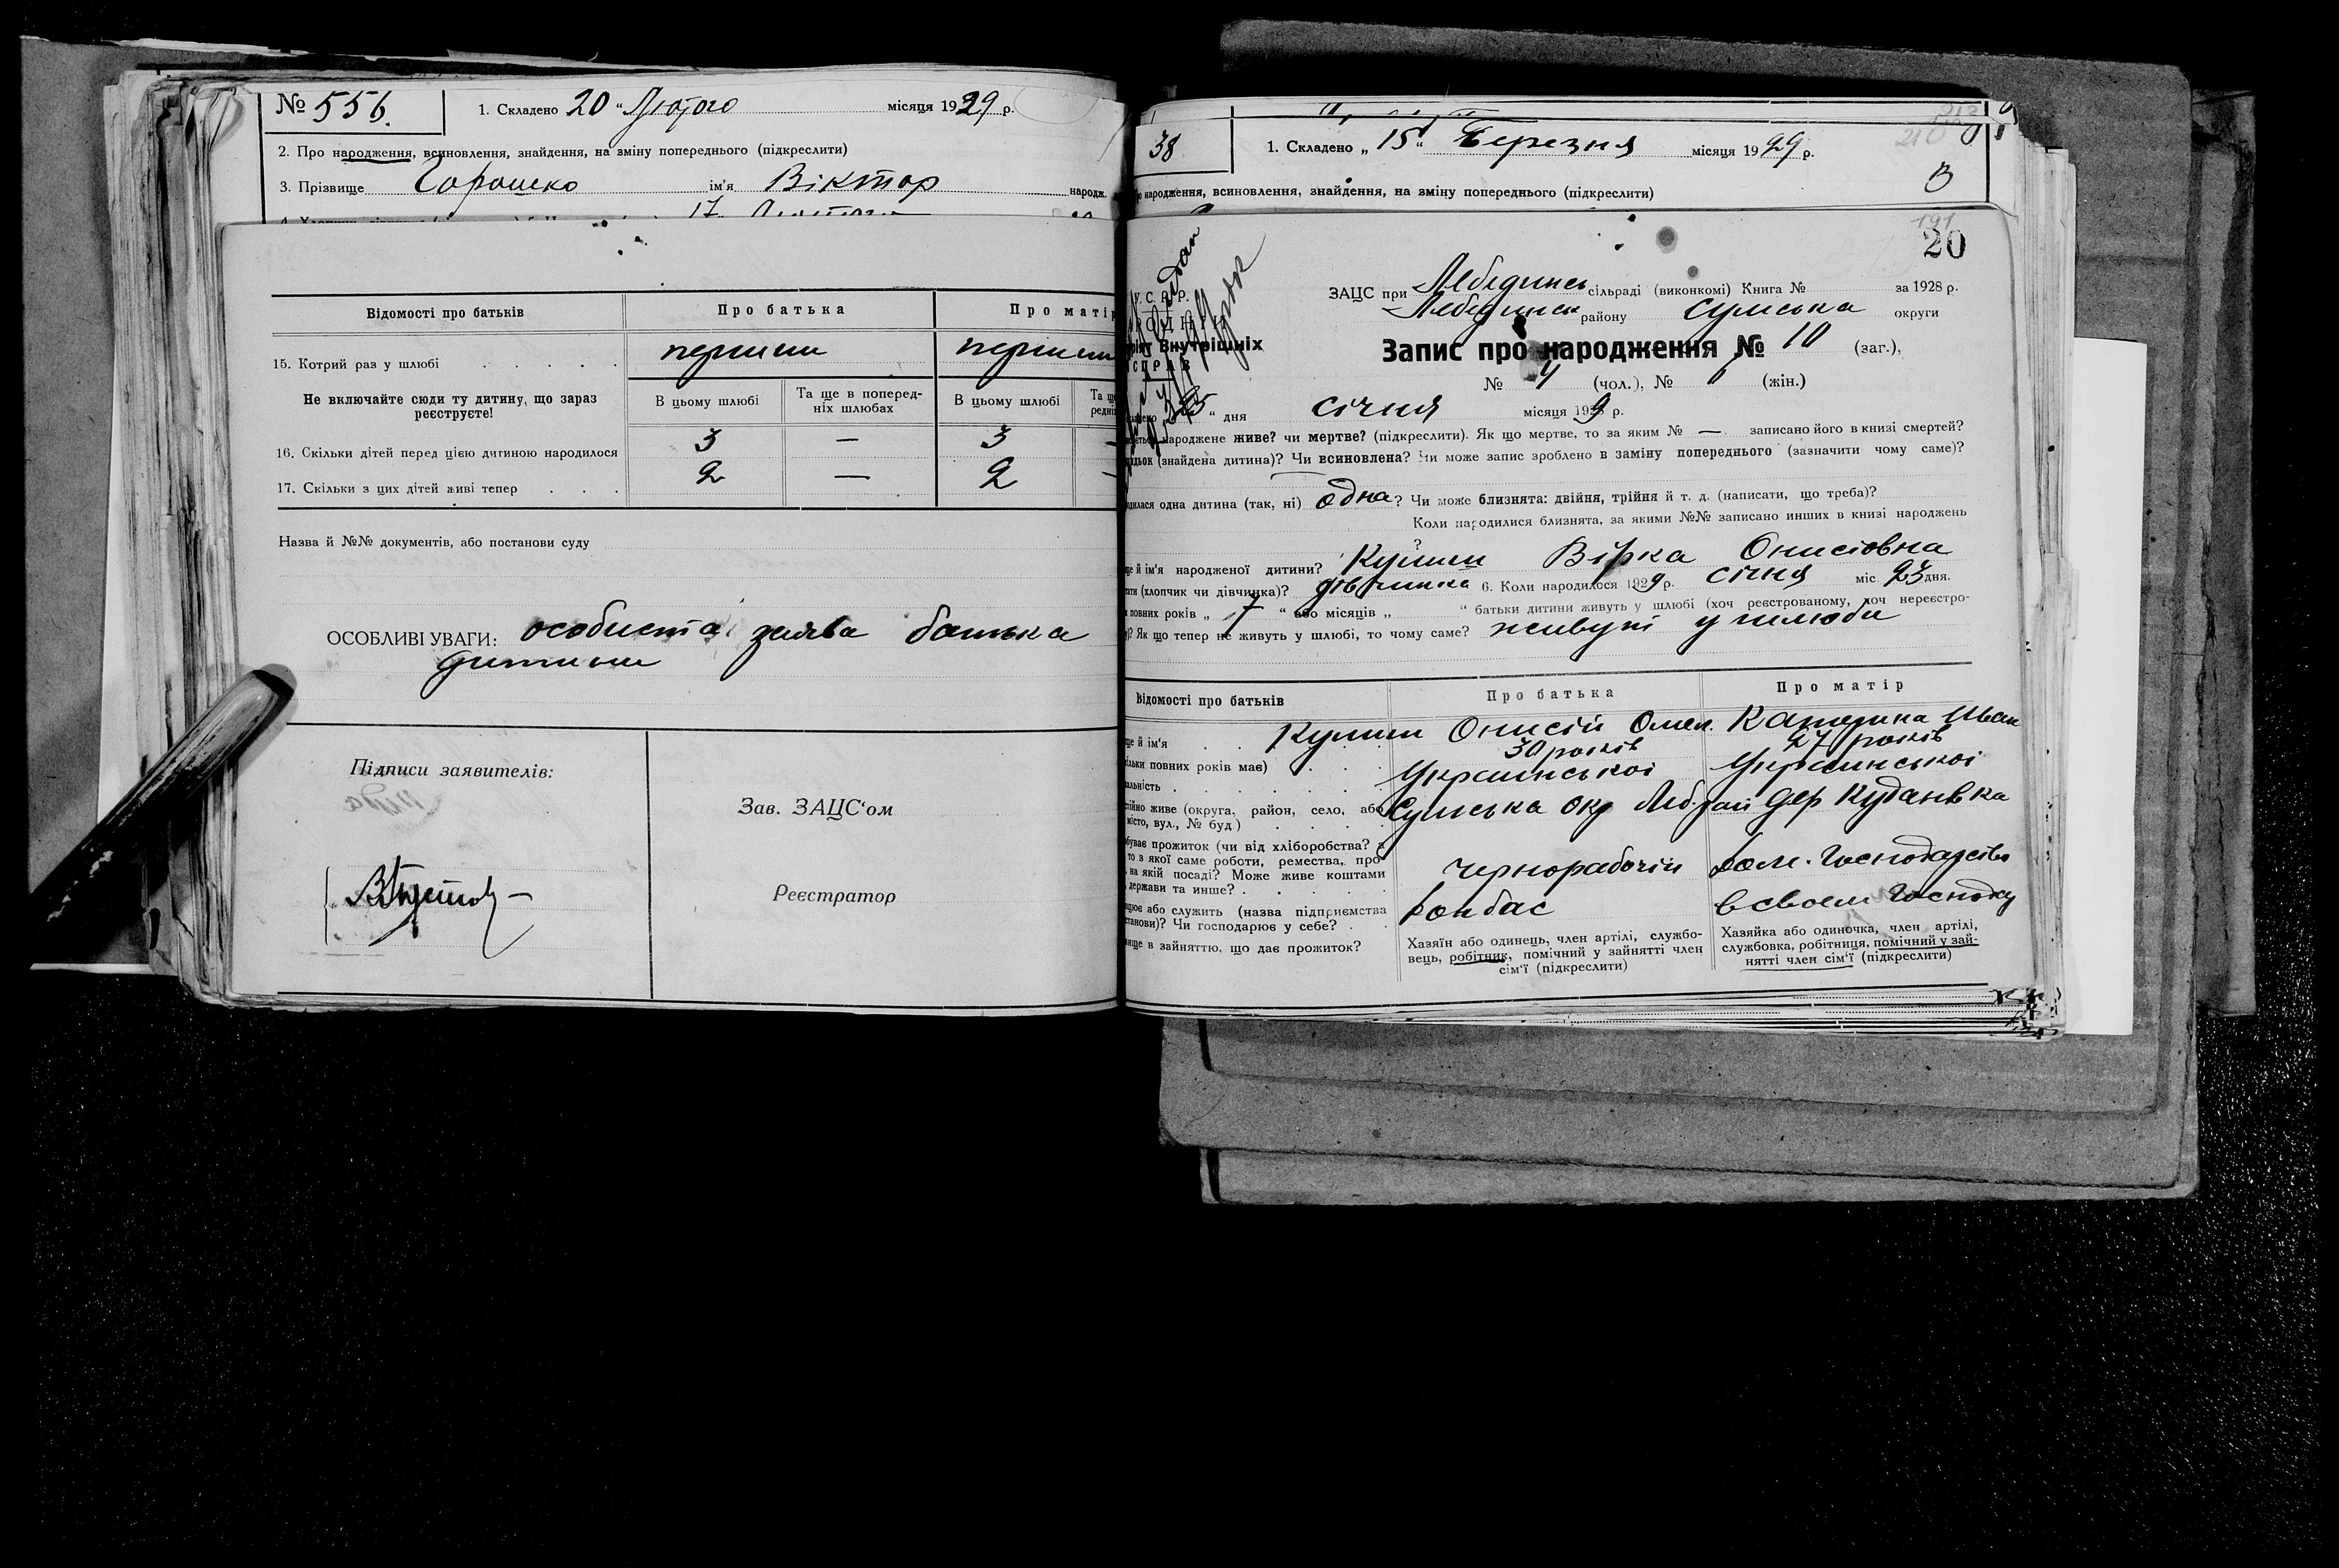 № 556. 1. Складено 20 "Лютого місяця 1929 р.
2. Про народження, всиновлення, знайдення, на зміну попереднього (підкреслити)
3. Прізвище Горошко ім'я Віктор народж.
17 Лютого
Відомості про батьків Про батька Про матір
15. Котрий раз у шлюбі . . . . . перший перший
Не включайте сюди ту дитину, що зараз реєструєте!
В цьому шлюбі Та ще в попередніх шлюбах В цьому шлюбі
16. Скільки дітей перед цією дитиною народилося 3 — 3 —
17. Скільки з цих дітей живі тепер . . . 2 — 2 —
Назва й №№ документів, або постанови суду
ОСОБЛИВІ УВАГИ: особиста заява батька
дитини
Підписи заявителів:
Зав. ЗАЦС'ом
Реєстратор
38 1. Складено „ 15 " Березня місяця 1929 р.
народження, всиновлення, знайдення, на зміну попереднього (підкреслити)
В
191
20
У.С.Р.Р.
Внутрішніх
СПРАВ
ЗАЦС при Лебединсь сільраді (виконкомі) Книга № за 1928 р.
Лебединськ району Сумська округи
Запис про народження № 10 (заг.),
№ 4 (чол.), № 6 (жін.)
25 " дня січня місяця 1929 р.
народжене живе? чи мертве? (підкреслити). Як що мертве, то за яким № — записано його в книзі смертей?
(знайдена дитина)? Чи всиновлена? Чи може запис зроблено в заміну попереднього (зазначити чому саме)?
одна дитина (так, ні) одна? Чи може близнята: двійня, трійня й т. д. (написати, що треба)?
Коли народилися близнята, за якими №№ записано инших в книзі народжень
?
й ім'я народженої дитини? Кулиш Вірка Онисіовна
(хлопчик чи дівчинка)? дівчинка 6. Коли народилося 1929 р. січня міс 23 дня.
повних років „ 7 " або місяців „ " батьки дитини живуть у шлюбі (хоч реєстрованому, хоч нереєстро-
? Як що тепер не живуть у шлюбі, то чому саме? живуть у шлюби
Відомості про батьків Про батька Про матір
й ім'я . . Кулиш Онисій Омел. Катерина Иван
повних років має) . . . 30 років 27 років
Украинськоі Украинськоі
живе (округа, район, село, або місто, вул., № буд.) Сумська окр Леб. рай дер Куданівка
прожиток (чи від хліборобства? з якої саме роботи, ремества, про на якій посаді? Може живе коштами держави та инше? . чернорабочій дом. господарстві
або служить (назва підприємства установи)? Чи господарює у себе? . Донбас в своем господ
в зайняттю, що дає прожиток?
Хазяїн або одинець, член артілі, службовець, робітник, помічний у зайнятті член сім'ї (підкреслити)
Хазяйка або одиночка, член артілі, службовка, робітниця, помічний у зайнятті член сім'ї (підкреслити)